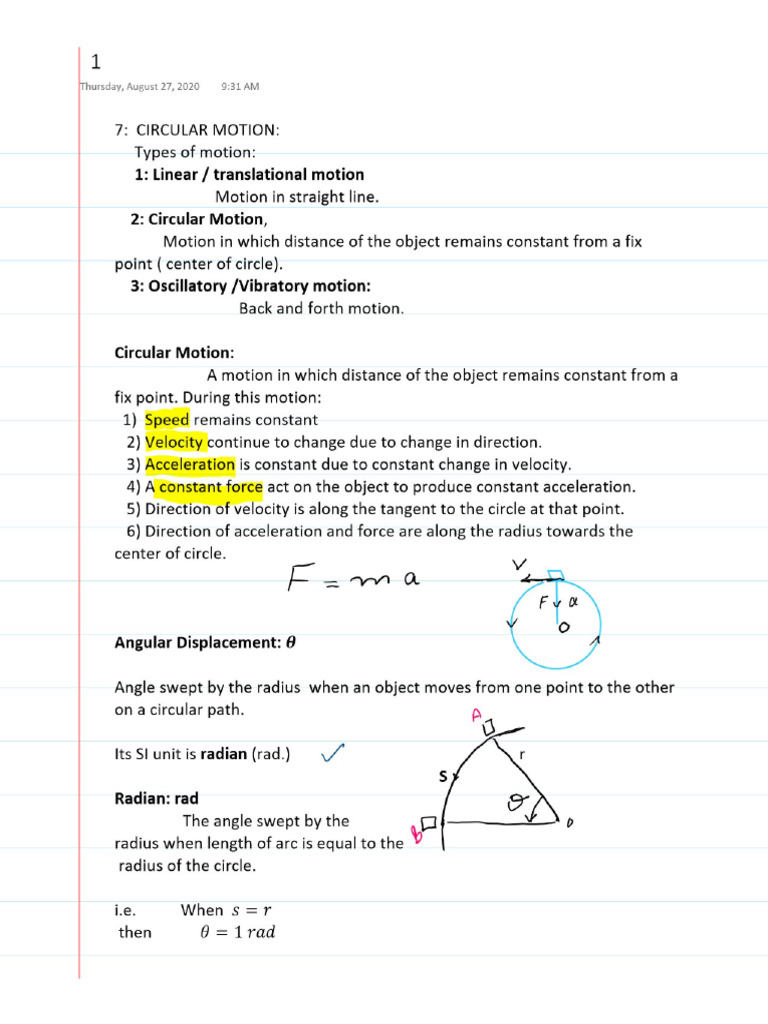 1
Thursday, August 27, 2020 9:31 AM
7: CIRCULAR MOTION:
Types of motion:
1: Linear / translational motion
Motion in straight line.
2: Circular Motion,
Motion in which distance of the object remains constant from a fix
point ( center of circle).
3: Oscillatory /Vibratory motion:
Back and forth motion.
Circular Motion:
A motion in which distance of the object remains constant from a
fix point. During this motion:
1) Speed remains constant
2) Velocity continue to change due to change in direction.
3) Acceleration is constant due to constant change in velocity.
4) A constant force act on the object to produce constant acceleration.
5) Direction of velocity is along the tangent to the circle at that point.
6) Direction of acceleration and force are along the radius towards the
center of circle.
F = m a
V
F a
O
Angular Displacement: θ
Angle swept by the radius when an object moves from one point to the other
on a circular path.
A
Its SI unit is radian (rad.)
r
S
Radian: rad
θ
The angle swept by the
B
O
radius when length of arc is equal to the
radius of the circle.
i.e. When s = r
then θ = 1 rad